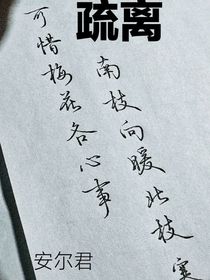 疏离
可惜梅花各心事
南枝向暖北枝寒
安尔君